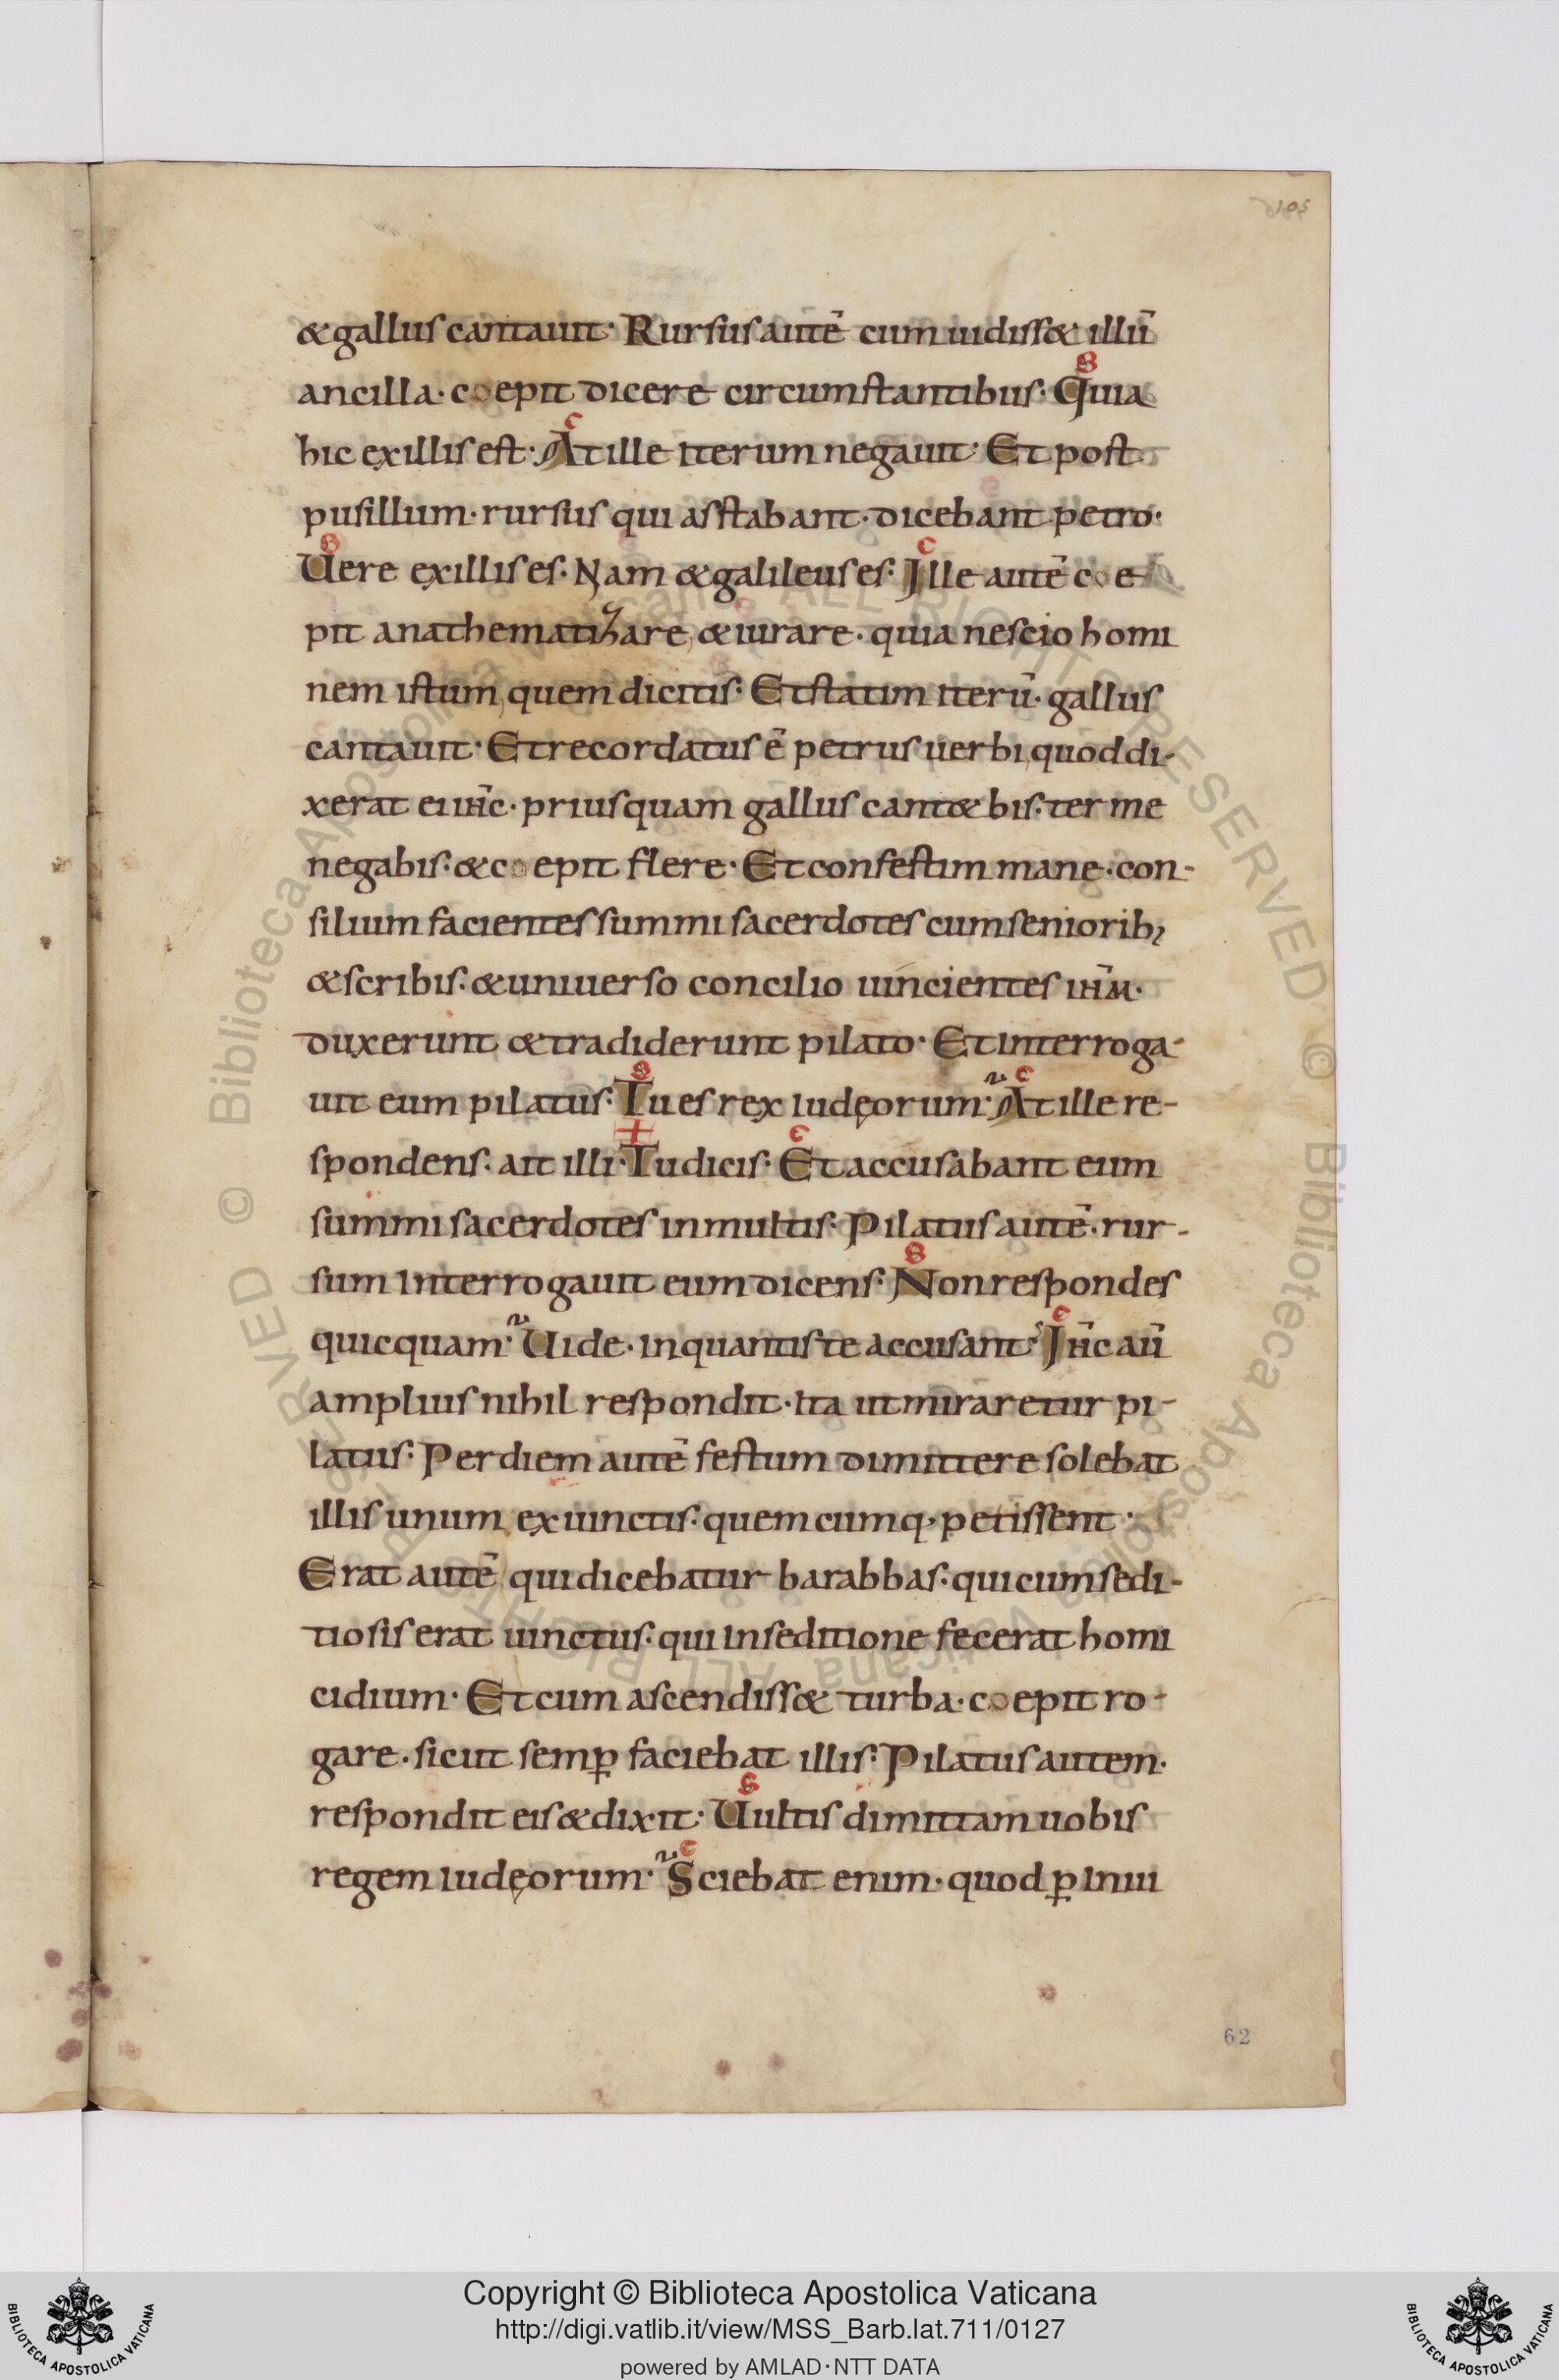 105
& gallus cantauit· Rursus autē cum uidiss& illū
S
ancilla· coepit dicere circumstantibus· Quia
c
hic exillis est· At ille iterum negauit· Et post
pusillum· rursus qui asstabant· dicebant petro·
S c
Uere exillis es· Nam & galileus es· Ille autē coe-
pit anathematizare & iurare· quia nescio homi
nem istum quem dicitis· Et statim iterū· gallus
cantauit· Et recordatus ē petrus uerbi quod di-
xerat ei ihc̄· priusquam gallus cant& bis· ter me
negabis· & coepit flere· Et confestim mane· con-
silium facientes summi sacerdotes cum seniorib;
& scribis· & uniuerso concilio uincientes ihm̄·
duxerunt & tradiderunt pilato· Et interroga-
S c
uit eum pilatus· Tu es rex iudęorum· At ille re-
+ c
spondens· ait illi· Tu dicis· Et accusabant eum
summi sacerdotes in multis· Pilatus autē· rur-
S
sum interrogauit eum dicens· Non respondes
c
quicquam· Uide· in quantis te accusant· Ihc̄ aū
amplius nihil respondit· ita ut miraretur pi-
latus· Per diem autē festum dimittere solebat
illis unum ex uinctis· quemcumq· petissent·
Erat autē qui dicebatur barabbas· qui cum sedi-
tiosis erat uinctus· qui in seditione fecerat homi
cidium· Et cum ascendiss& turba· coepit ro-
gare· sicut semꝑ faciebat illis· Pilatus autem·
S
respondit eis & dixit· Uultis dimittam uobis
c
regem iudęorum· Sciebat enim· quod ꝑ inui
62
© Biblioteca Apostolica Vaticana ALL RIGHTS RESERVED © Biblioteca Apostolica Vaticana ALL RIGHTS RESERVED
Copyright © Biblioteca Apostolica Vaticana
http://digi.vatlib.it/view/MSS_Barb.lat.711/0127
powered by AMLAD·NTT DATA
BIBLIOTECA APOSTOLICA VATICANA
BIBLIOTECA APOSTOLICA VATICANA